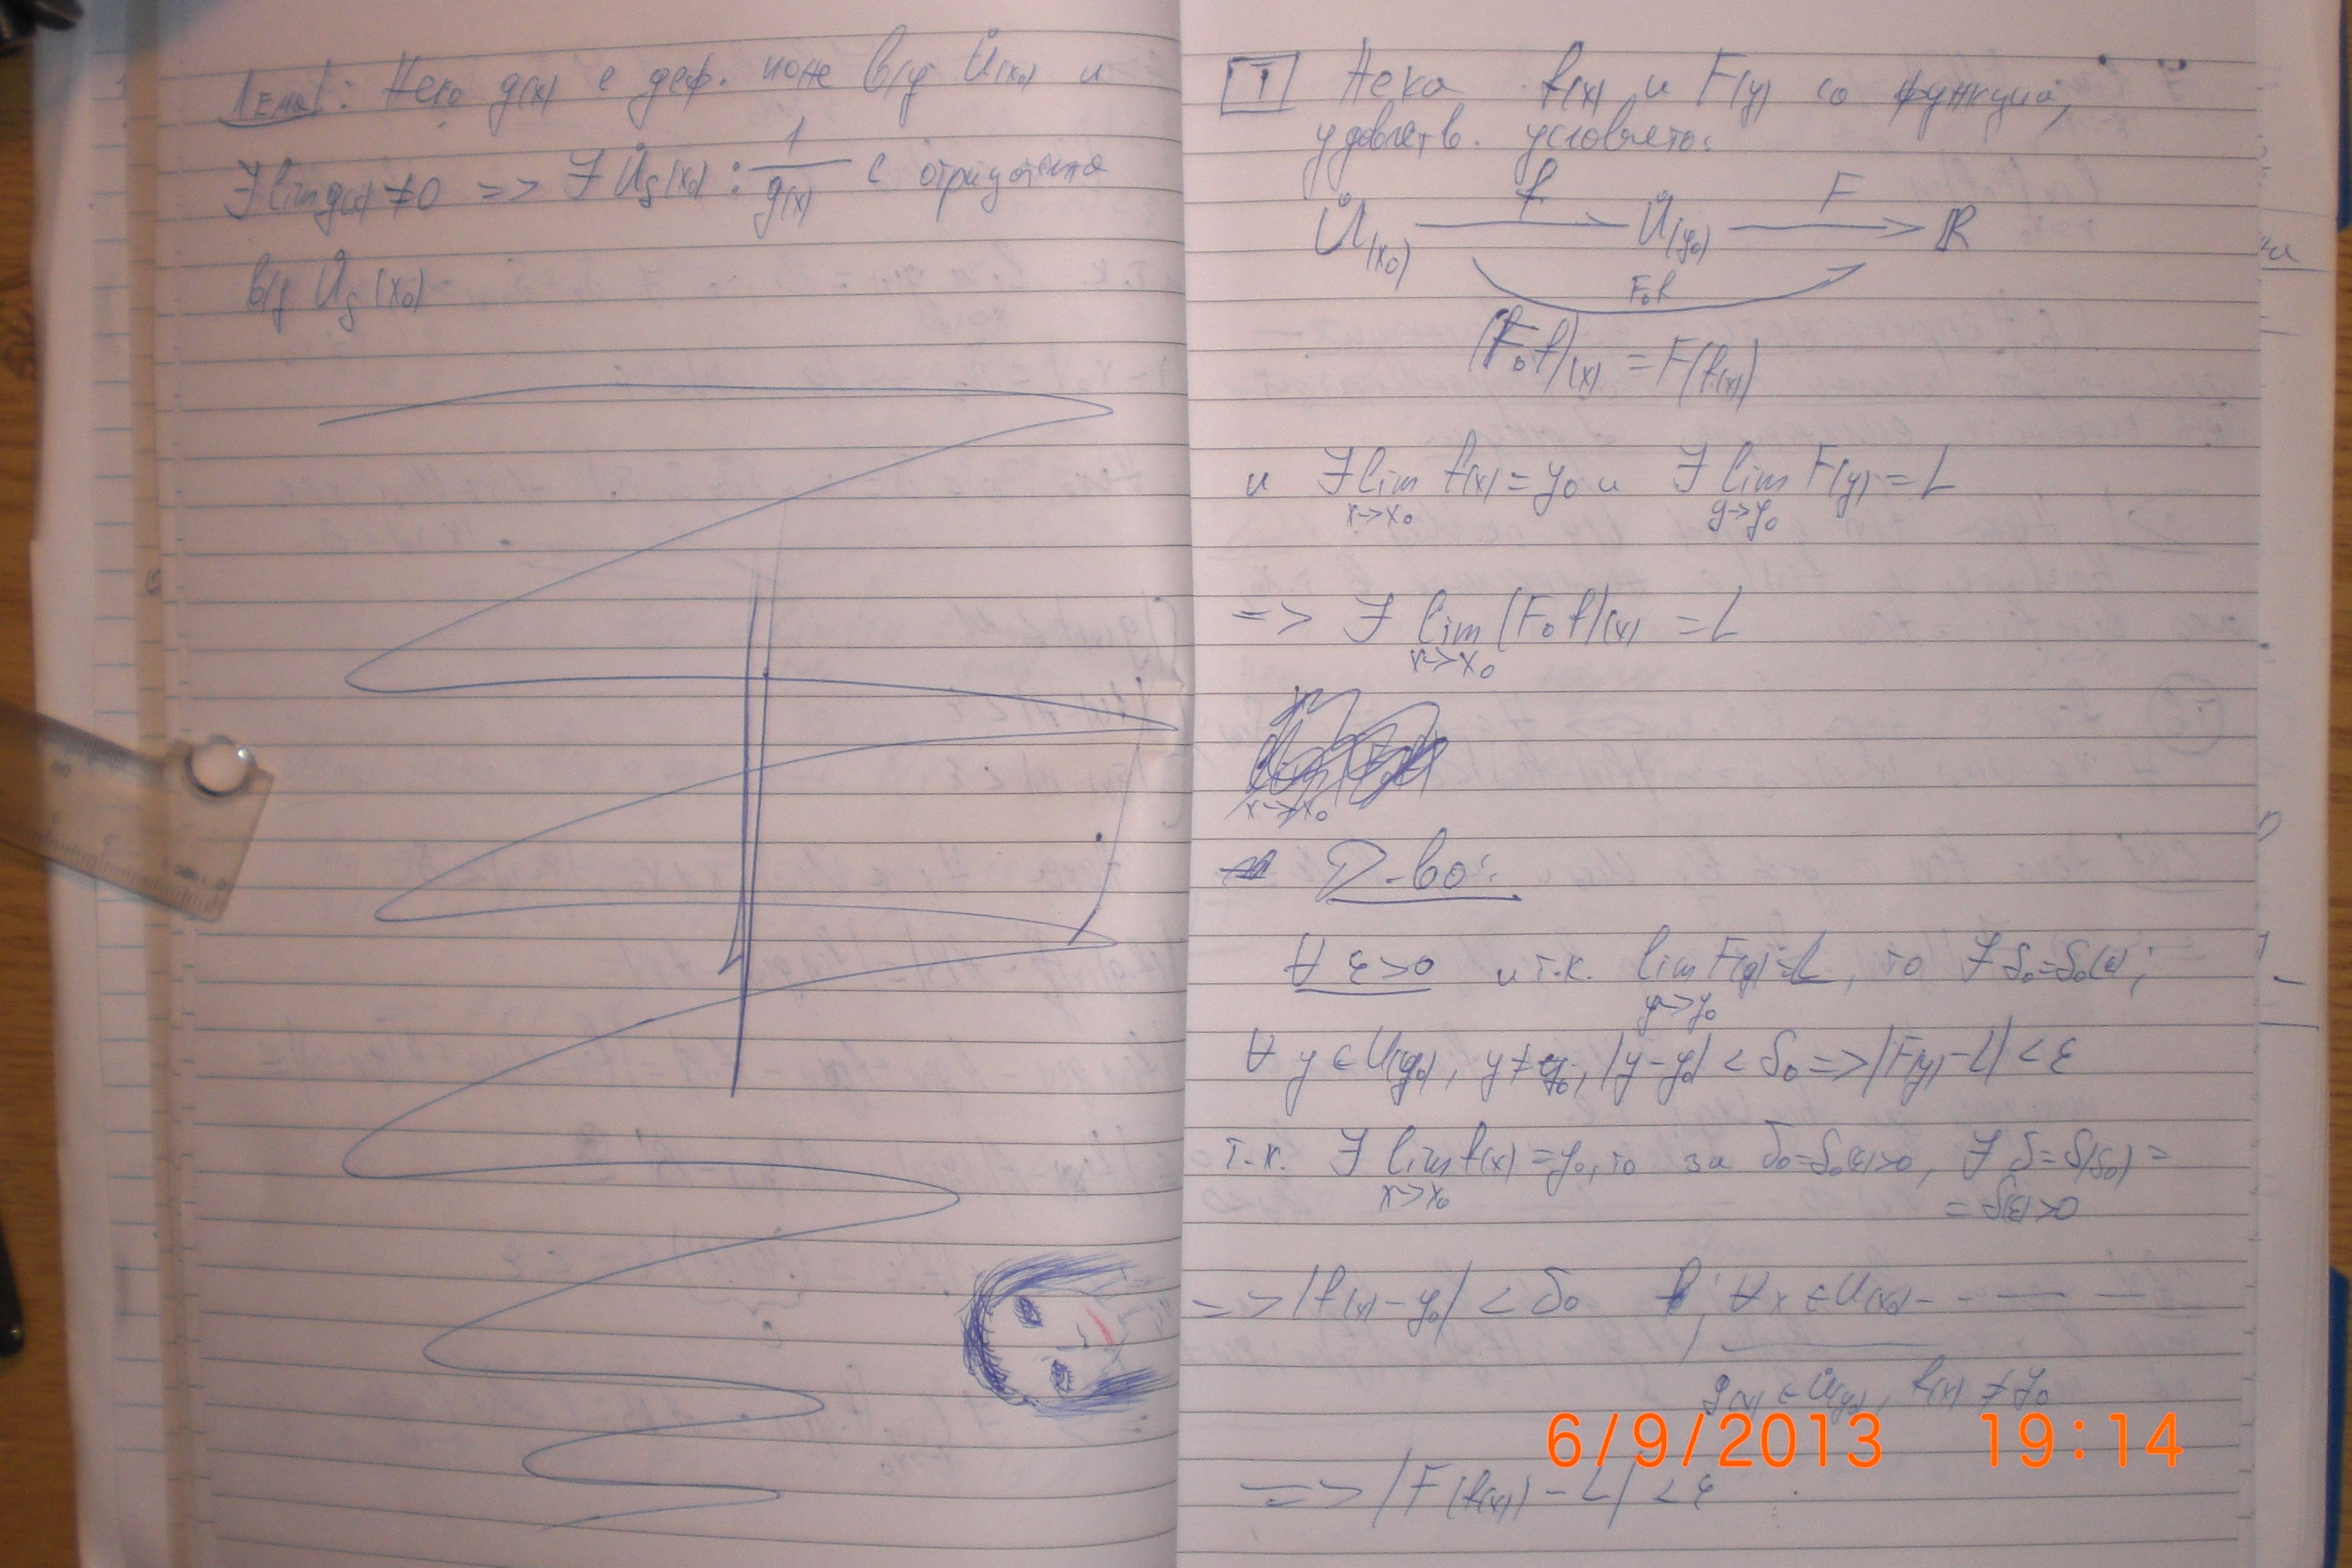 Лема: Нека g(x) е деф. поне в/у Ů(x₀) и
∃ lim g(x) ≠ 0 => ∃ Ůδ(x₀) : 1/g(x) е ограничена
в/у Ůδ(x₀)
T Нека f(x) и F(y) са функции,
удовлетв. условието:
Ů(x₀) f→ Ů(y₀) F→ ℝ
F∘f
(F∘f)(x) = F(f(x))
и ∃ lim x->x₀ f(x) = y₀ и ∃ lim y->y₀ F(y) = L
=> ∃ lim x->x₀ (F∘f)(x) = L
x->x₀
Д-во:
∀ ε>0 и т.к. lim y->y₀ F(y)=L, то ∃ δ₀=δ₀(ε);
∀ y ∈ U(y₀), y≠y₀, |y-y₀| < δ₀ => |F(y)-L| < ε
т.к. ∃ lim x->x₀ f(x) = y₀, то за δ₀=δ₀(ε)>0, ∃ δ=δ(δ₀) =
= δ(ε)>0
=> |f(x)-y₀| < δ₀ ; ∀ x ∈ U(x₀) - - — —
g(x) ∈ Ů(y₀), f(x) ≠ y₀
6/9/2013 19:14
=> |F(f(x)) - L| < ε